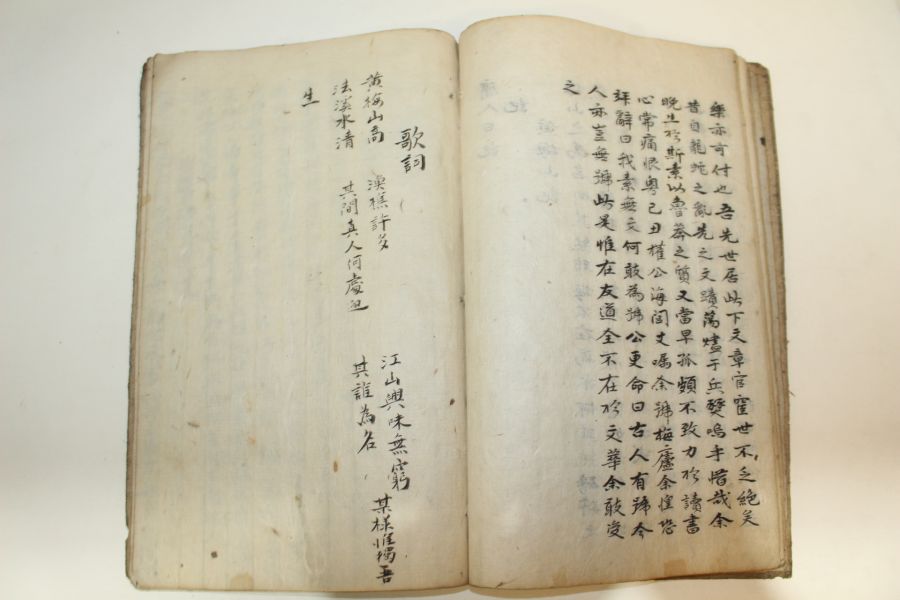 樂亦可付也吾先世居此下文章官宦世不乏絶矣
昔自龍蛇之亂先之文蹟蕩燼于兵燹嗚乎惜哉余
晩生於斯素以魯莽之質又當早孤頗不致力於讀書
心常痛恨粤己丑權公海閏丈囑余號梅廬余惶恐
拜辭曰我素無文何敢為號公更命曰古人有號今
人亦豈無號此是惟在友道全不在於文華余敢受
之
歌詞
黄梅山高 漁樵許多 江山興味無窮 某樣惟獨吾
法溪水清 其間真人何處 其誰為名
生